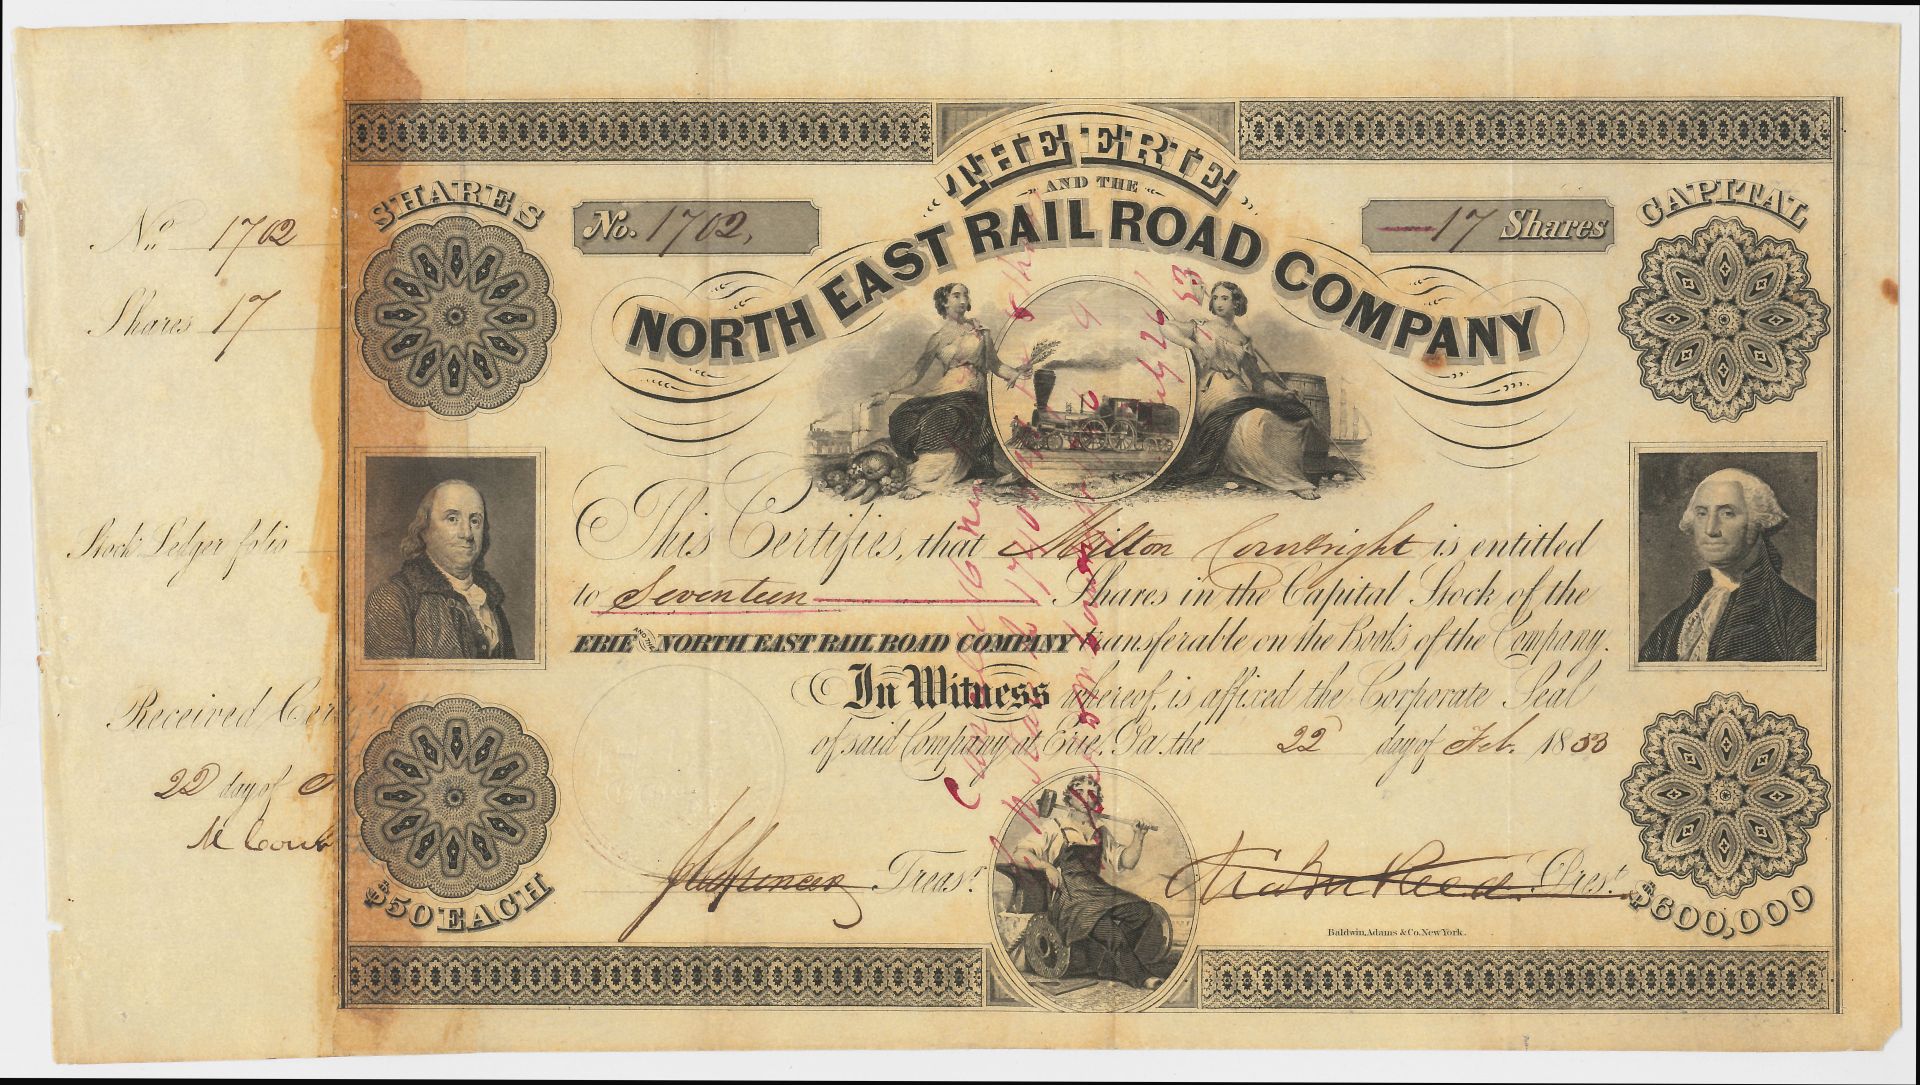 THE ERIE
AND THE
NORTH EAST RAIL ROAD COMPANY
SHARES
No. 1702,
17 Shares
CAPITAL
No. 1702
Shares 17
This Certifies, that Milton Courtright is entitled
to Seventeen Shares in the Capital Stock of the
ERIE AND THE NORTH EAST RAIL ROAD COMPANY transferable on the Books of the Company.
Stock Ledger folio
In Witness whereof, is affixed the Corporate Seal
of said Company at Erie, Pa. the 22 day of Feb. 1853
Received Cer
22 day of
M Court
Treasr.
Prest.
$50 EACH
$600,000
Baldwin, Adams & Co. New York.
July 26
53